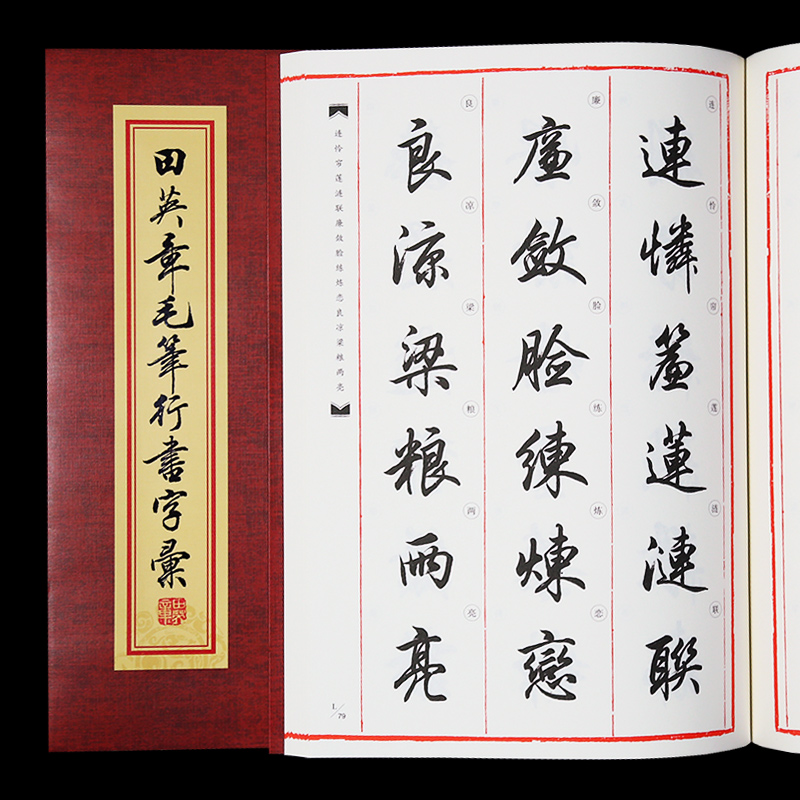 田英章毛筆行書字彙
田英章
連憐簾蓮漣聯
连怜帘莲涟联
廉斂脸練煉戀
廉敛脸练炼恋
良涼梁粮兩亮
良凉梁粮两亮
连怜帘莲涟联廉敛脸练炼恋良凉梁粮两亮
L/79